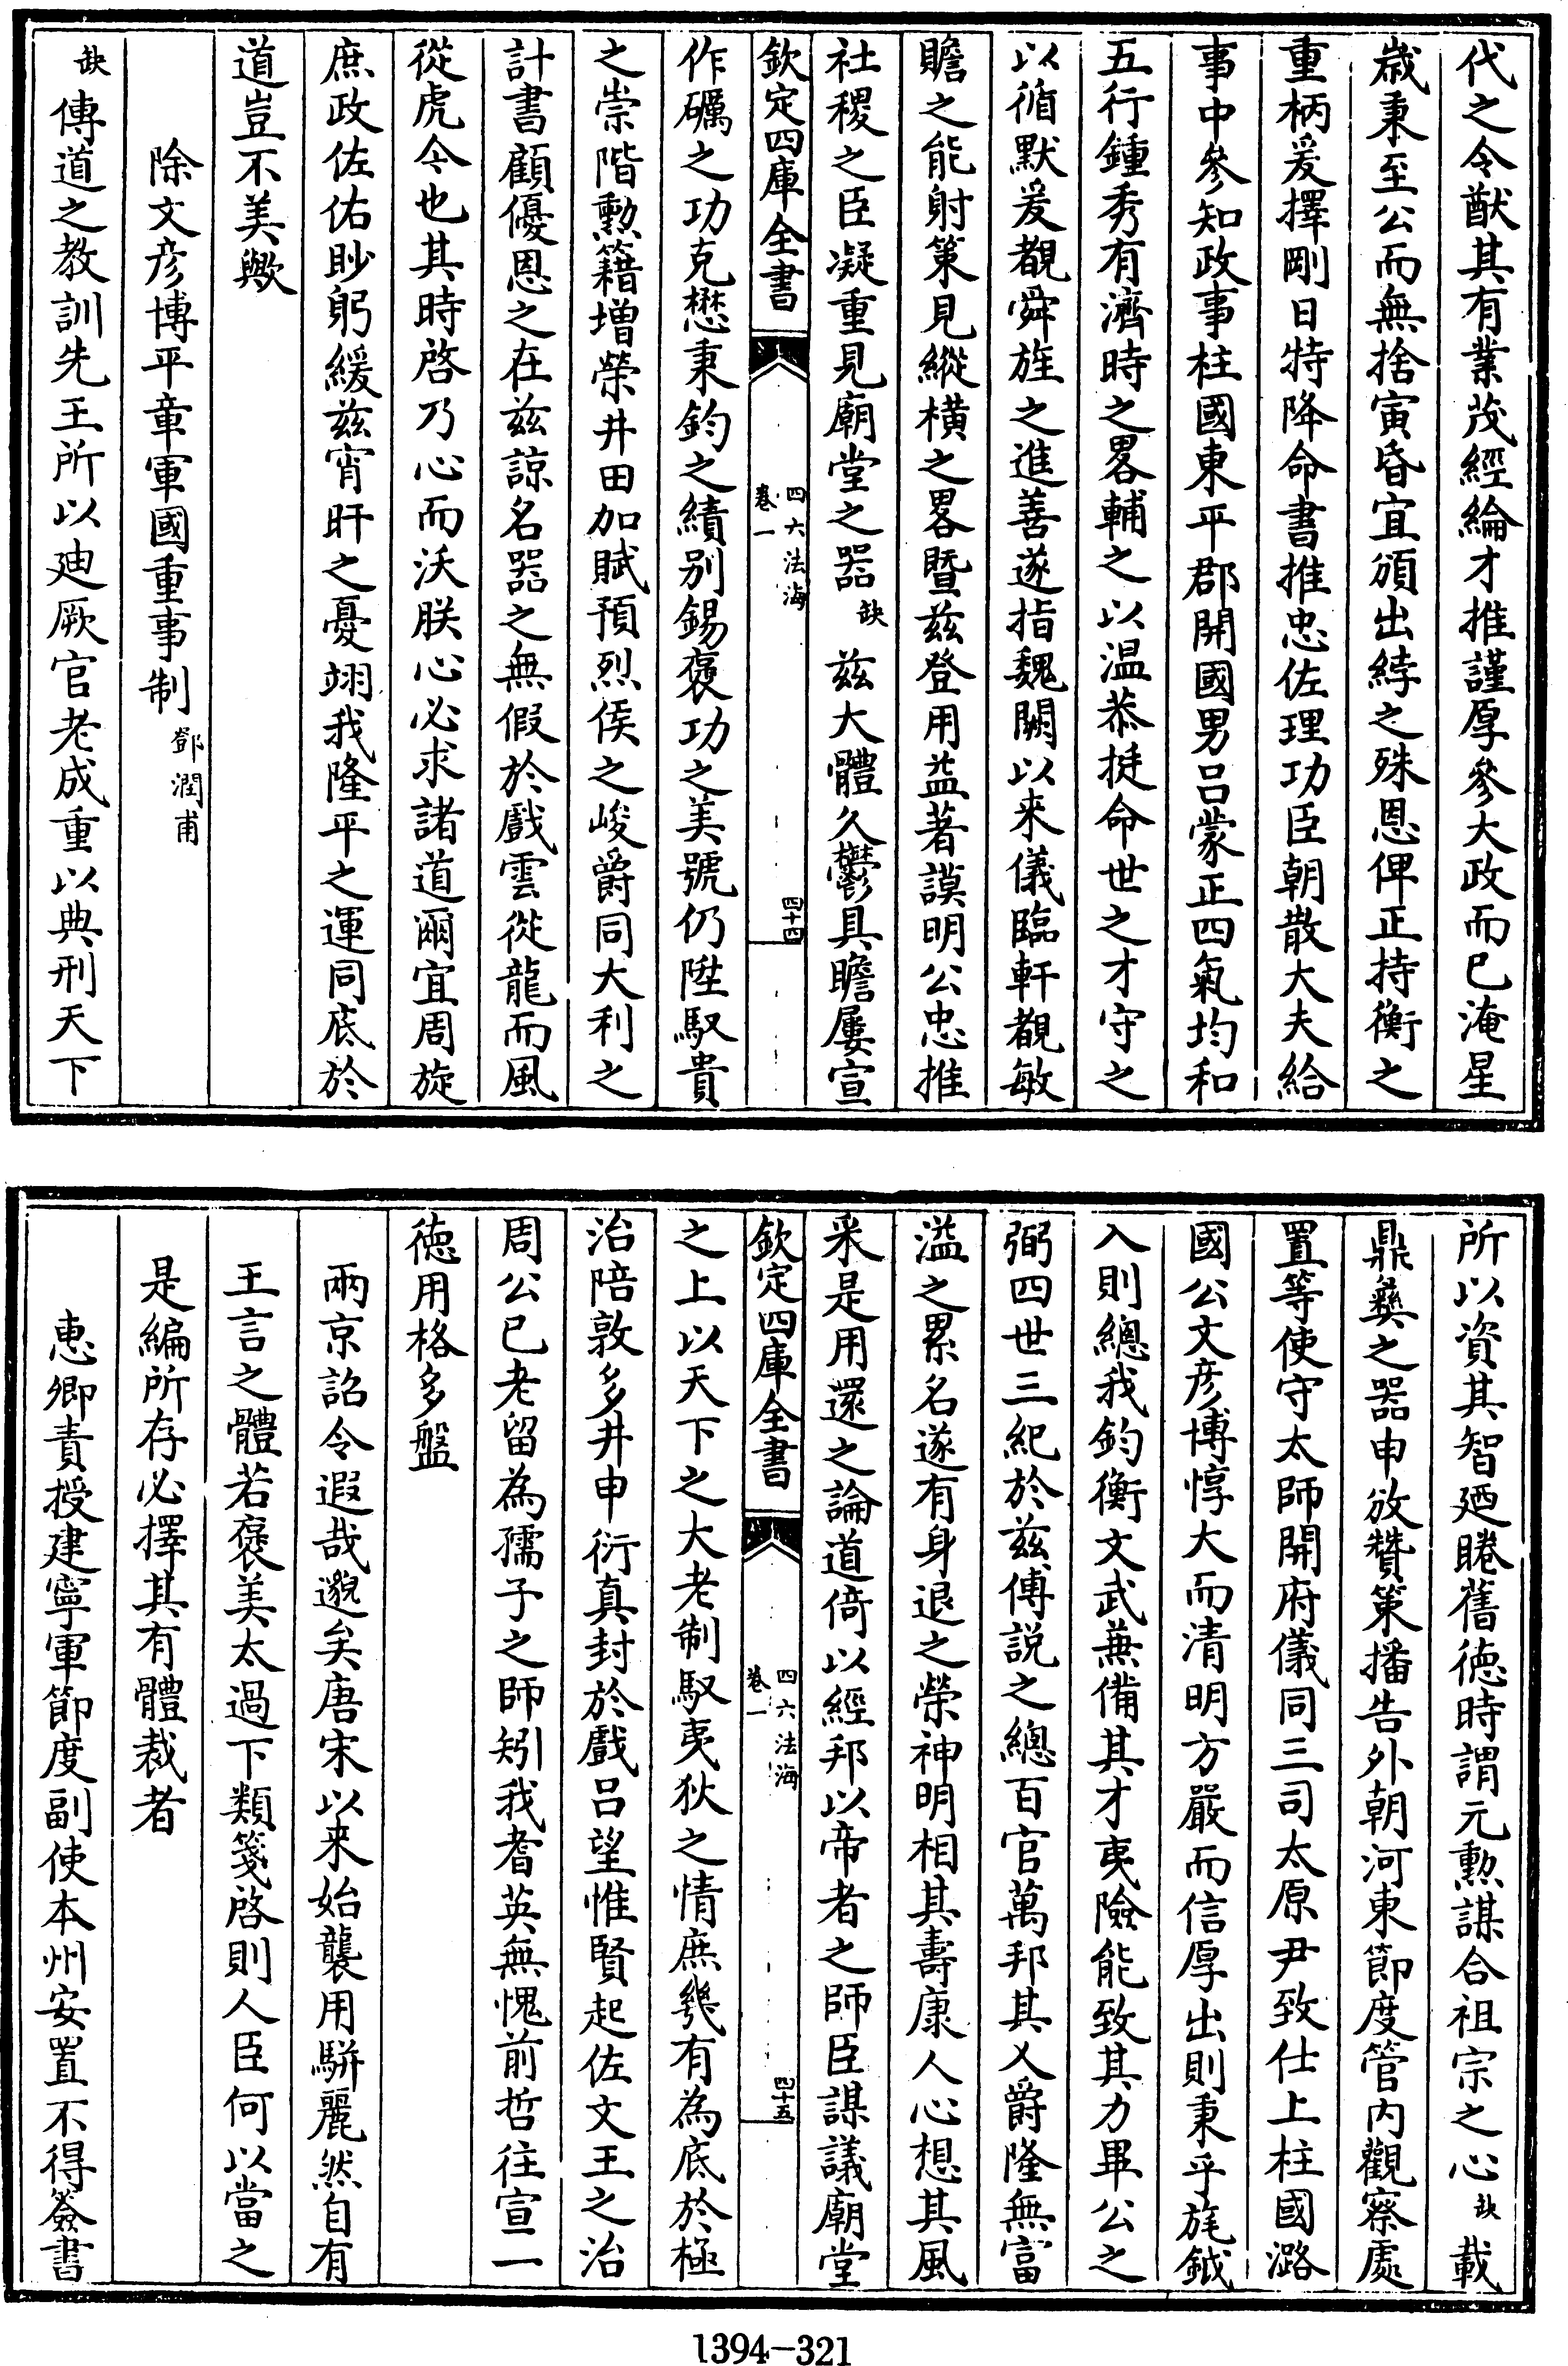 代之令猷其有業茂經綸才推謹厚參大政而已淹星
歲秉至公而無捨寅昏宜頒出綍之殊恩俾正持衡之
重柄爰擇剛日特降命書推忠佐理功臣朝散大夫給
事中參知政事柱國東平郡開國男呂蒙正四氣均和
五行鍾秀有濟時之畧輔之以温恭挺命世之才守之
以循默爰覩舜旌之進善遂指魏闕以来儀臨軒覩敏
贍之能射策見縱橫之畧暨兹登用益著謨明公忠推
社稷之臣凝重見廟堂之器缺 兹大體久鬱具瞻屢宣
欽定四庫全書
四六法海
卷一
四十四
作礪之功克懋秉鈞之績别錫褒功之美號仍陞馭貴
之崇階勲籍增榮井田加賦預烈侯之峻爵同大利之
計書顧優恩之在兹諒名器之無假於戲雲從龍而風
從虎今也其時啓乃心而沃朕心必求諸道爾宜周旋
庶政佐佑眇躬緩兹宵旰之憂翊我隆平之運同底於
道豈不美歟
除文彦博平章軍國重事制鄧潤甫
缺 傳道之教訓先王所以廸厥官老成重以典刑天下
所以資其智廼睠舊徳時謂元勲謀合祖宗之心缺 載
鼎彝之器申放贊策播告外朝河東節度管内觀察處
置等使守太師開府儀同三司太原尹致仕上柱國潞
國公文彦博惇大而清明方嚴而信厚出則秉乎旄鉞
入則總我鈞衡文武兼備其才夷險能致其力畢公之
弼四世三紀於兹傅説之總百官萬邦其乂爵隆無富
溢之累名遂有身退之榮神明相其壽康人心想其風
采是用還之論道倚以經邦以帝者之師臣謀議廟堂
欽定四庫全書
四六法海
卷一
四十五
之上以天下之大老制馭夷狄之情庶幾有為底於極
治陪敦多井申衍真封於戲呂望惟賢起佐文王之治
周公已老留為孺子之師矧我耆英無愧前哲往宣一
徳用格多盤
兩京詔令遐哉邈矣唐宋以来始襲用駢麗然自有
王言之體若褒美太過下類箋啓則人臣何以當之
是編所存必擇其有體裁者
惠卿責授建寧軍節度副使本州安置不得簽書
1394-321